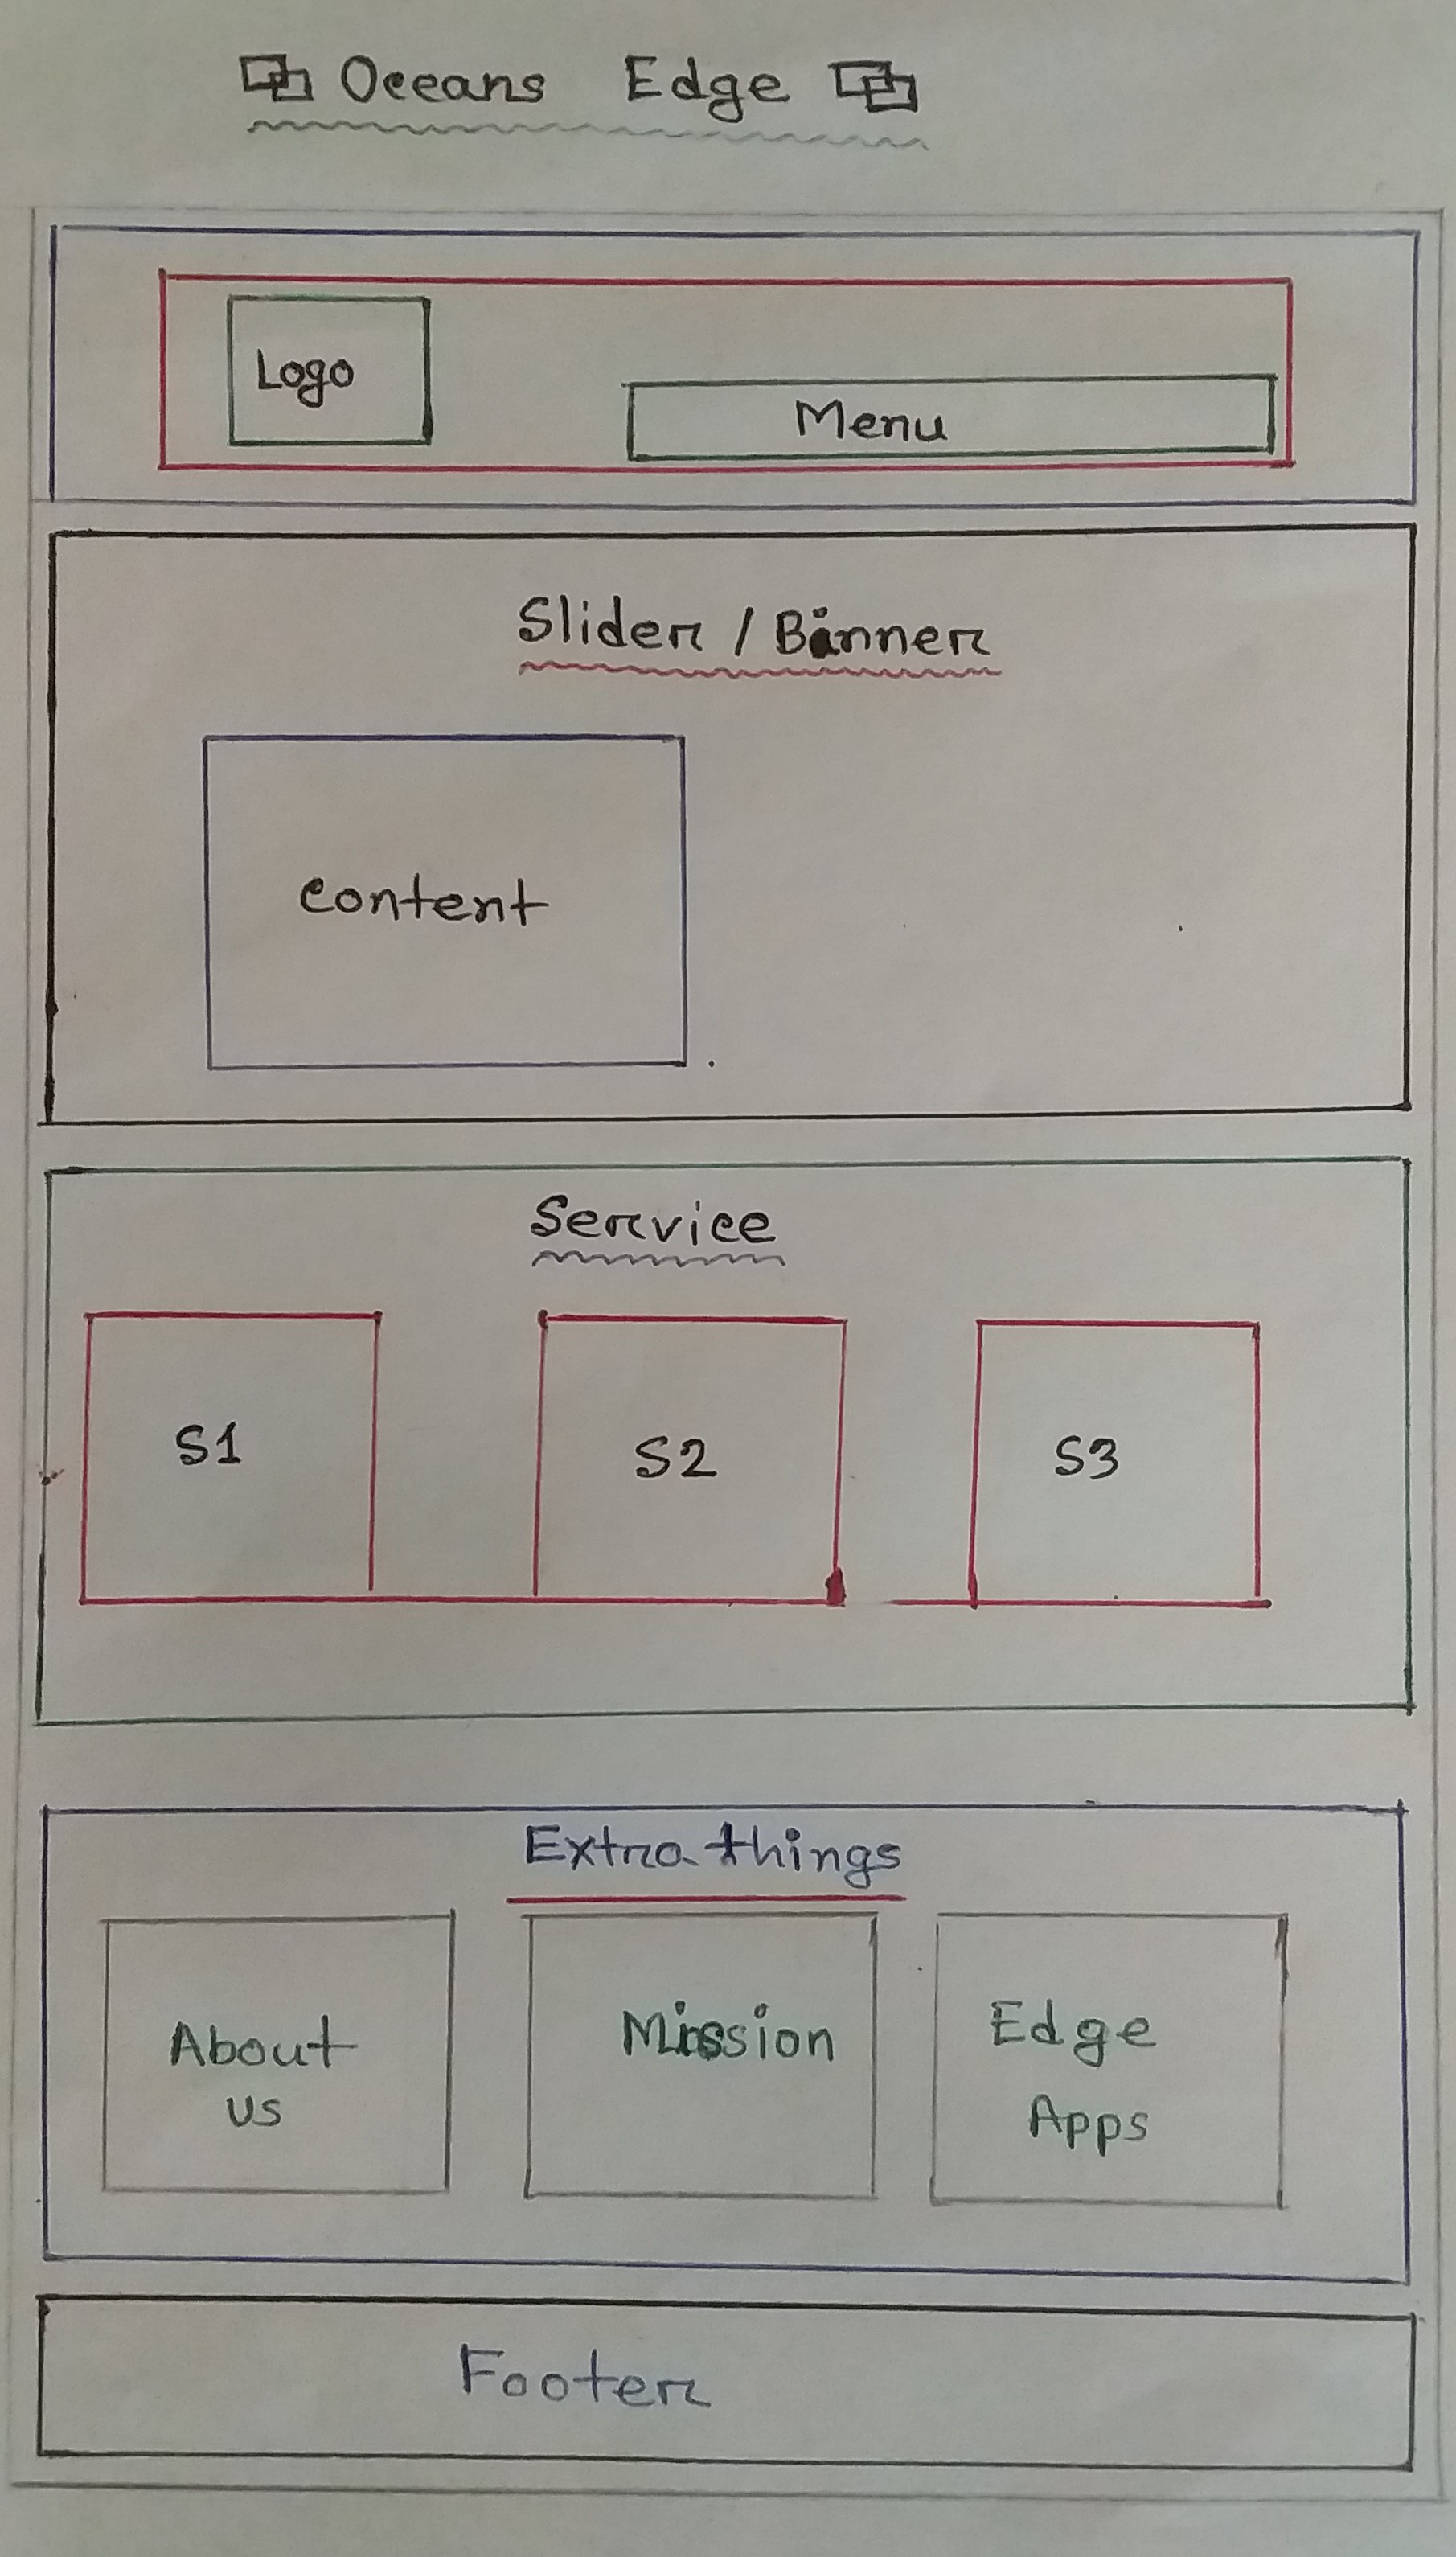 Oceans Edge
Logo
Menu
Slider / Banner
Content
Service
S1 S2 S3
Extra things
About
us
Mission
Edge
Apps
Footer